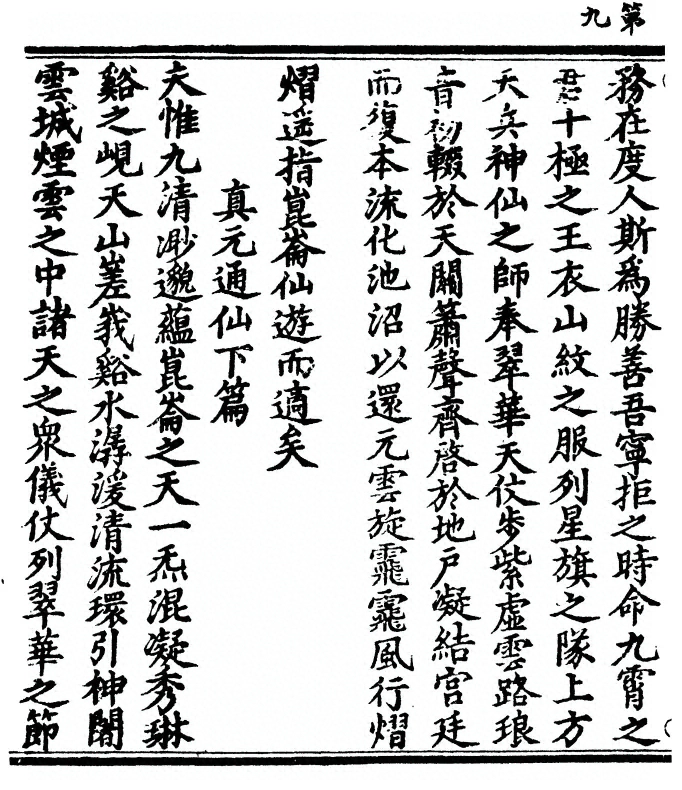 第九
務在度人斯為勝善吾寧拒之時命九霄之
君十極之王衣山紋之服列星旗之隊上方
天兵神仙之師奉翠華天仗步紫虛雲路琅
音初輟於天關簫聲齊啓於地戶凝結宮廷
而復本流化池沼以還元雲旋靆靆風行熠
熠遥指崑崙仙遊而適矣
真元通仙下篇
夫惟九清渺邈蘊崑崙之天一炁混凝秀琳
谿之峴天山嵳峩谿水潺湲清流環引神闍
雲城煙雲之中諸天之衆儀仗列翠華之節